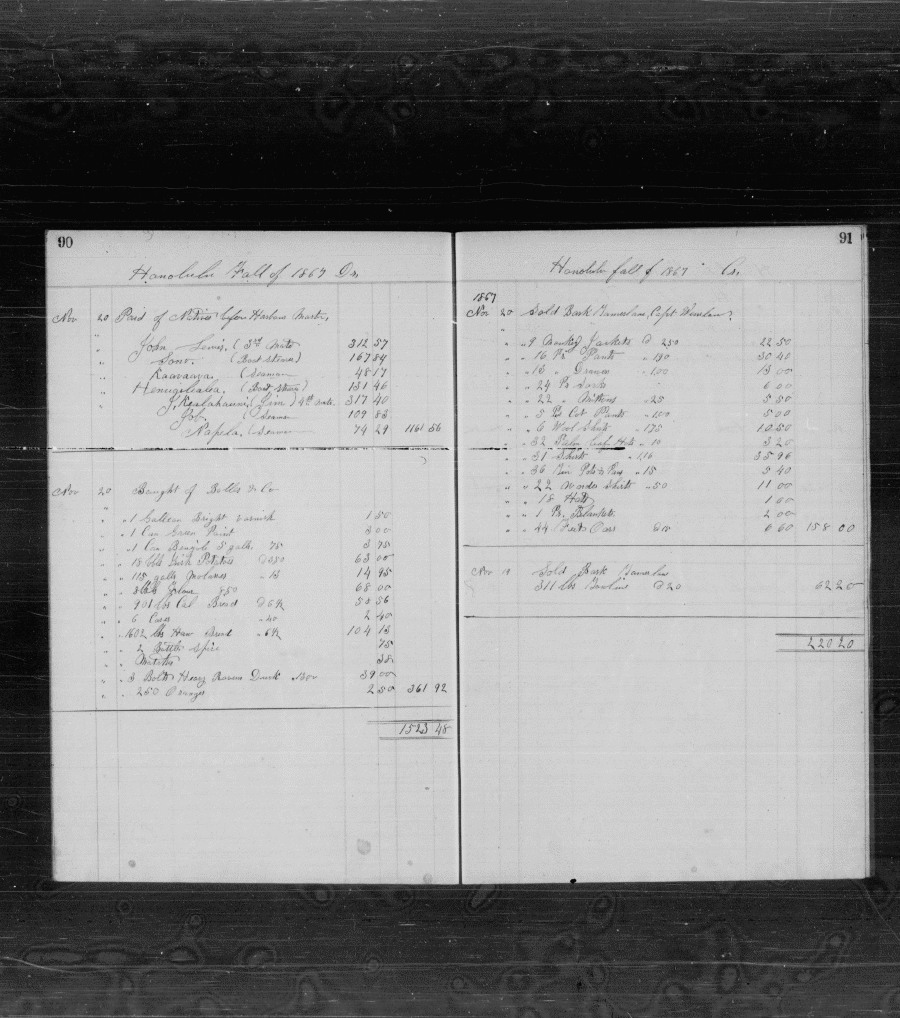 90
Honolulu Fall of 1867 Dr.
Nov 20 Paid of Natives before Harbour Master,
" John Lewis, (3rd Mate 312 57
" (Boat steerer) 167 84
" Kaavaava (Seaman 48 17
" (Boat steerer) 131 46
" J. Kealahauni (Jim) 4th mate 317 40
" Job (Seaman 109 83
" Napela, (Seaman 74 29 1161 56
Nov 20 Bought of Bolles & Co
"
" " 1 Gallon Bright varnish 1 50
" " 1 Can Green Paint 3 00
" " 1 Can 5 galls 75 3 75
" " 18 bbls Irish Potatoes @ 350 63 00
" " 115 galls Molasses " 13 14 95
" " 8 bbls Flour 850 68 00
" " 901 lbs Cal Bread @ 6½
" " 6 " 40 2 40
" " 1602 lbs Haw Bread " 6½ 104 13
" " 2 Bottles 75
" " 38
" " 3 Bolts Heavy Ravens Duck " 1300 39 00
" " 250 Oranges 2 50 361 92
1523 48
91
Honolulu fall of 1867 Cr.
1867
Nov 20 Sold Bark Capt Winslow
" " 9 Monkey Jackets @ 250 22 50
" " 16 Pr Pants " 190 30 40
" " 13 " Drawers " 100 13 00
" " 24 Pr Socks 6 00
" " 22 " Mittens " 25 5 50
" " 5 Pr Cot Pants " 100 5 00
" " 6 Wool Shirts " 175 10 50
" " 32 Hats " 10 3 20
" " 31 Shirts " 116 35 96
" " 36 Tin Pots & Pans " 15 5 40
" " 22 Under Shirts " 50 11 00
" " 18 Hats 1 00
" " 1 Pr. Blankets 2 00
" " 44 Feet Oars @ 15 6 60 158 00
Nov 19 Sold Bark
311 lbs @ 20 62 20
220 20